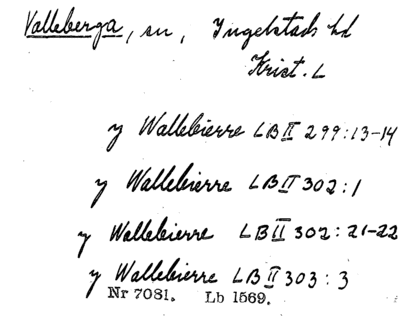 Valleberga, sn, Ingelstads hd
Krist. L
y Wallebierre LB II 299:13-14
y Wallebierre LB II 302:1
y Wallebierre LB II 302:21-22
y Wallebierre LB II 303:3
Nr 7081. Lb 1569.